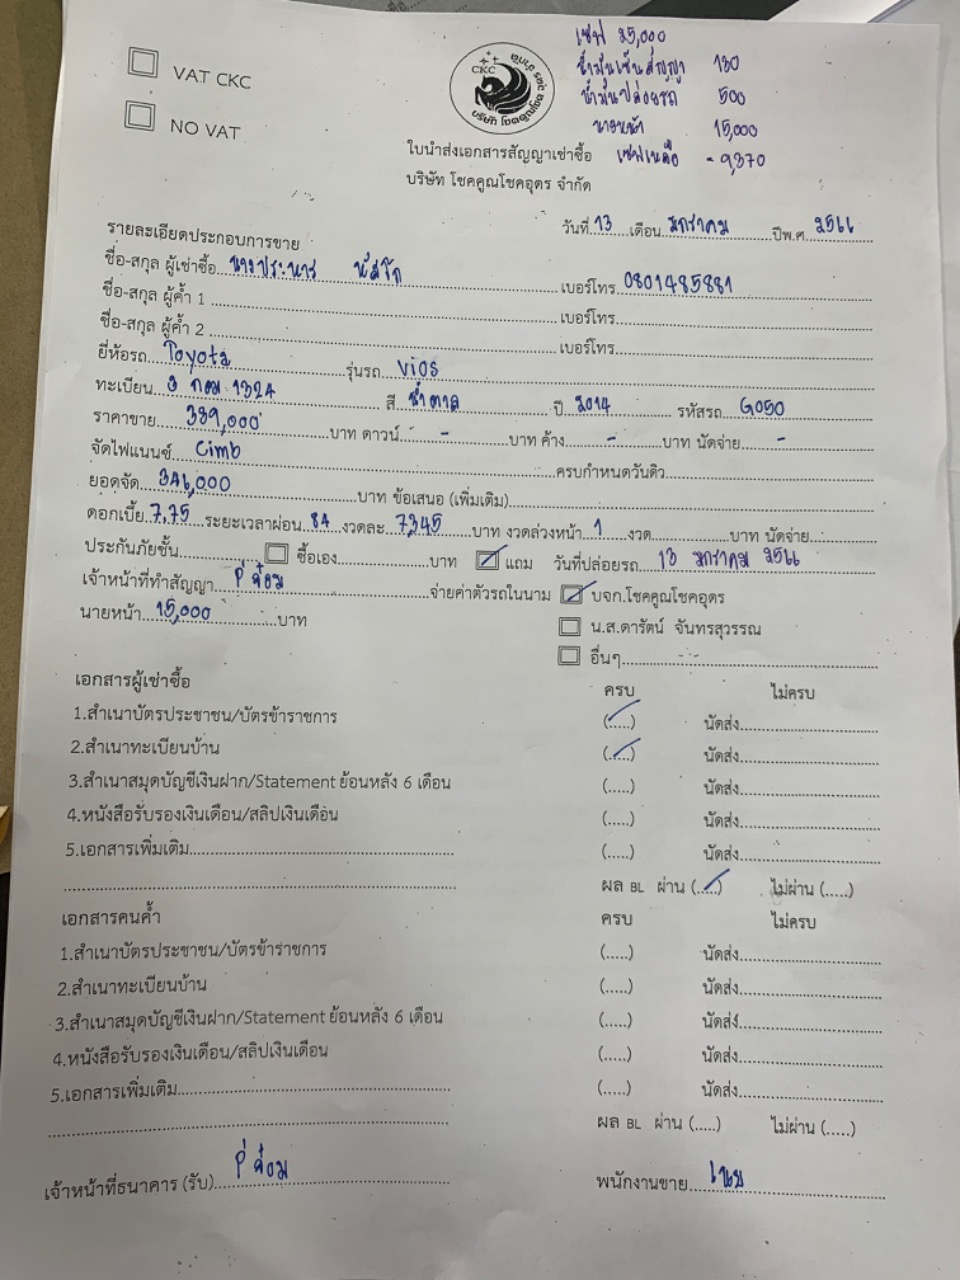 VAT CKC
NO VAT
CKC
บริษัท โชคคูณโชคอุดร จำกัด
เซฟ 25,000
น้ำมันเซ็นสัญญา 130
น้ำมันปล่อยรถ 500
นายหน้า 15,000
เซฟเหลือ - 9,370
ใบนำส่งเอกสารสัญญาเช่าซื้อ
บริษัท โชคคูณโชคอุดร จำกัด
วันที่ 13 เดือน มกราคม ปีพ.ศ. 2566
รายละเอียดประกอบการขาย
ชื่อ-สกุล ผู้เช่าซื้อ นางประหาร เบอร์โทร 0801485881
ชื่อ-สกุล ผู้ค้ำ 1 เบอร์โทร
ชื่อ-สกุล ผู้ค้ำ 2 เบอร์โทร
ยี่ห้อรถ Toyota รุ่นรถ Vios
ทะเบียน 3 กฌ 1324 สี น้ำตาล ปี 2014 รหัสรถ G050
ราคาขาย 389,000 บาท ดาวน์ - บาท ค้าง - บาท นัดจ่าย -
จัดไฟแนนซ์ Cimb ครบกำหนดวันดิว
ยอดจัด 346,000 บาท ข้อเสนอ (เพิ่มเติม)
ดอกเบี้ย 7,75 ระยะเวลาผ่อน 84 งวดละ 7,345 บาท งวดล่วงหน้า 1 งวด บาท นัดจ่าย
ประกันภัยชั้น ซื้อเอง บาท แถม วันที่ปล่อยรถ 13 มกราคม 2566
เจ้าหน้าที่ทำสัญญา พี่จ๋อม จ่ายค่าตัวรถในนาม บจก.โชคคูณโชคอุดร
นายหน้า 15,000 บาท น.ส.ดารัตน์ จันทรสุวรรณ
อื่นๆ
เอกสารผู้เช่าซื้อ ครบ ไม่ครบ
1.สำเนาบัตรประชาชน/บัตรข้าราชการ (.....) นัดส่ง
2.สำเนาทะเบียนบ้าน (.....) นัดส่ง
3.สำเนาสมุดบัญชีเงินฝาก/Statement ย้อนหลัง 6 เดือน (.....) นัดส่ง
4.หนังสือรับรองเงินเดือน/สลิปเงินเดือน (.....) นัดส่ง
5.เอกสารเพิ่มเติม (.....) นัดส่ง
ผล BL ผ่าน (.....) ไม่ผ่าน (.....)
เอกสารคนค้ำ ครบ ไม่ครบ
1.สำเนาบัตรประชาชน/บัตรข้าราชการ (.....) นัดส่ง
2.สำเนาทะเบียนบ้าน (.....) นัดส่ง
3.สำเนาสมุดบัญชีเงินฝาก/Statement ย้อนหลัง 6 เดือน (.....) นัดส่ง
4.หนังสือรับรองเงินเดือน/สลิปเงินเดือน (.....) นัดส่ง
5.เอกสารเพิ่มเติม (.....) นัดส่ง
ผล BL ผ่าน (.....) ไม่ผ่าน (.....)
เจ้าหน้าที่ธนาคาร (รับ) พี่จ๋อม พนักงานขาย เนย